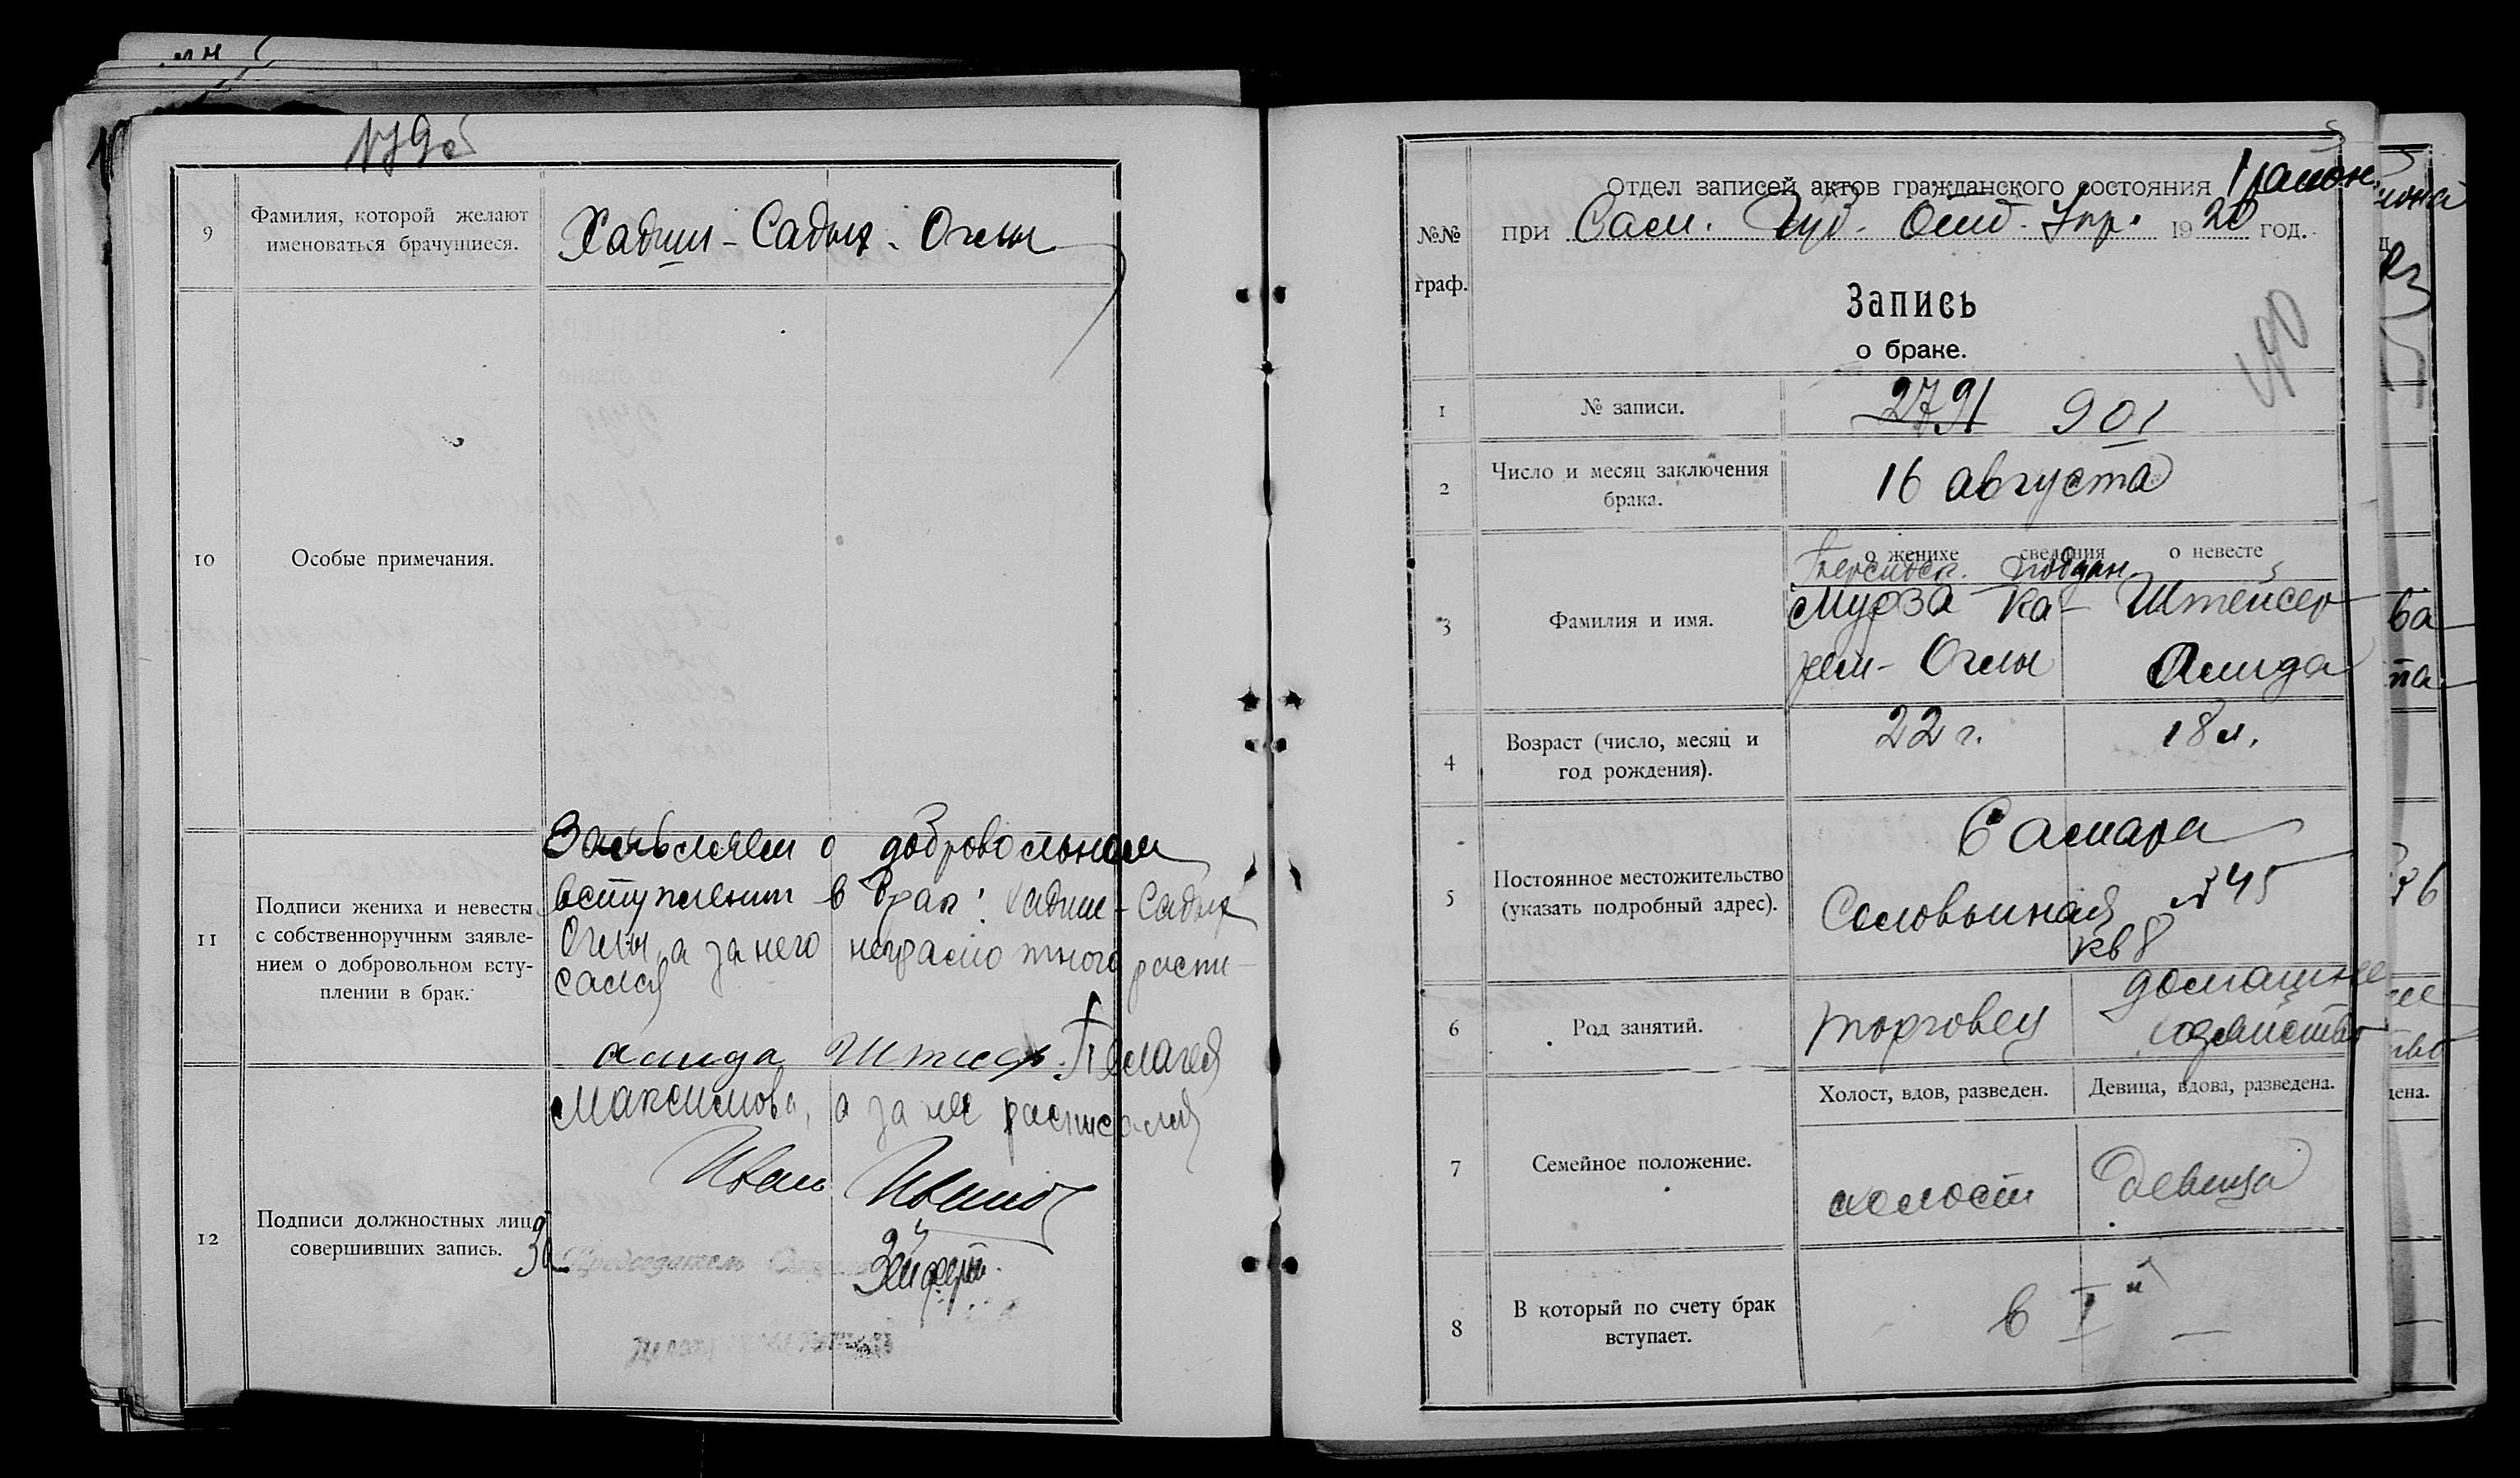 9
Фамилия, которой желают
именоваться брачущиеся.
Хадши - Садых - Оглы
10
Особые примечания.
11
Подписи жениха и невесты
с собственноручным заявле-
нием о добровольном всту-
плении в брак.
Заявляем о добровольном
вступлении в брак: Хадши - Садых
Оглы, а за него неграмотного распи-
сался
Амида Пелагея
Максимова, а за нее расписался
Иван
12
Подписи должностных лиц,
совершивших запись.
За Председатель
Зейферт.
№№
граф.
Отдел записей актов гражданского состояния 1 район.
при Сам. Губ. Отд. Упр. 1920 год.
Запись
о браке.
1
№ записи.
2791 901
2
Число и месяц заключения
брака.
16 августа
о женихе сведения о невесте
Персидск. поддан.
3
Фамилия и имя.
Мурза Ка- Штейсер
рем - Оглы Амида
4
Возраст (число, месяц и
год рождения).
22 г. 18 л.
5
Постоянное местожительство
(указать подробный адрес).
Самара
Соловьиная № 45
кв 8
6
Род занятий.
торговец домашнее
хозяйство
7
Семейное положение.
Холост, вдов, разведен. Девица, вдова, разведена.
холост девица
8
В который по счету брак
вступает.
в I й